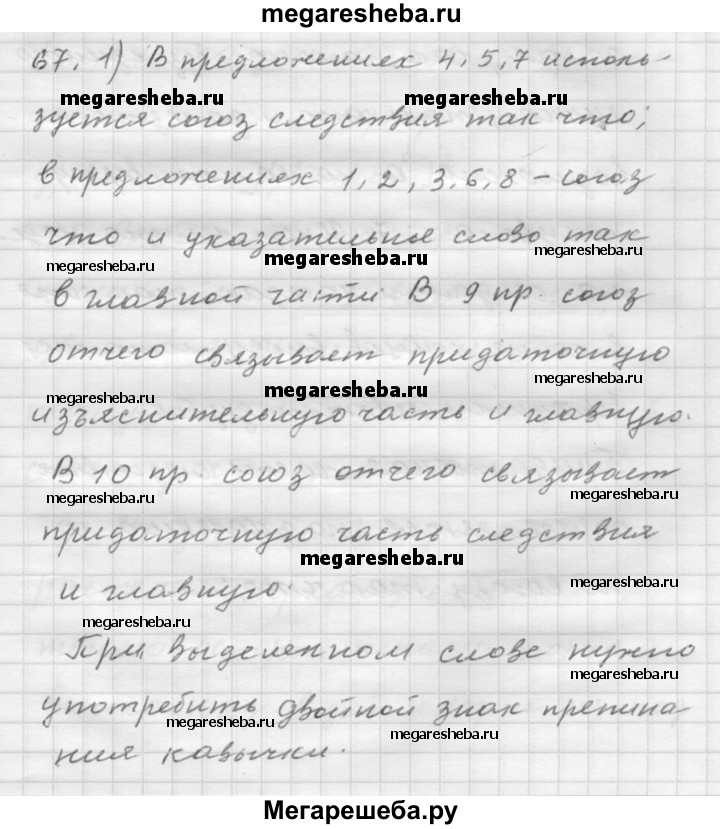 megaresheba.ru
67. 1) В предложениях 4, 5, 7 исполь-
megaresheba.ru megaresheba.ru
зуется союз следствия так что;
в предложениях 1, 2, 3, 6, 8 – союз
что и указательное слово так
megaresheba.ru megaresheba.ru megaresheba.ru
в главной части. В 9 пр. союз
отчего связывает придаточную
megaresheba.ru megaresheba.ru megaresheba.ru
изъяснительную часть и главную.
В 10 пр. союз отчего связывает
megaresheba.ru megaresheba.ru
придаточную часть следствия
megaresheba.ru
и главную.
megaresheba.ru
megaresheba.ru
При выделенном слове нужно
употребить двойной знак препина-
megaresheba.ru megaresheba.ru
ния кавычки.
Мегарешеба.ру